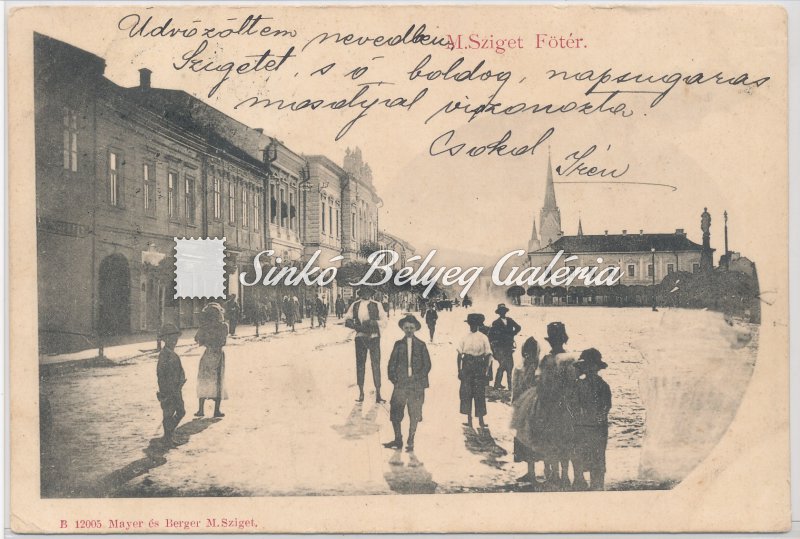 M.Sziget Fötér.
Üdvözöltem nevedben
Szigetet, s ő boldog, napsugaras
mosolylyal viszonozta.
Csókol Irén
Sinkó Bélyeg Galéria
B 12005 Mayer és Berger M.Sziget.